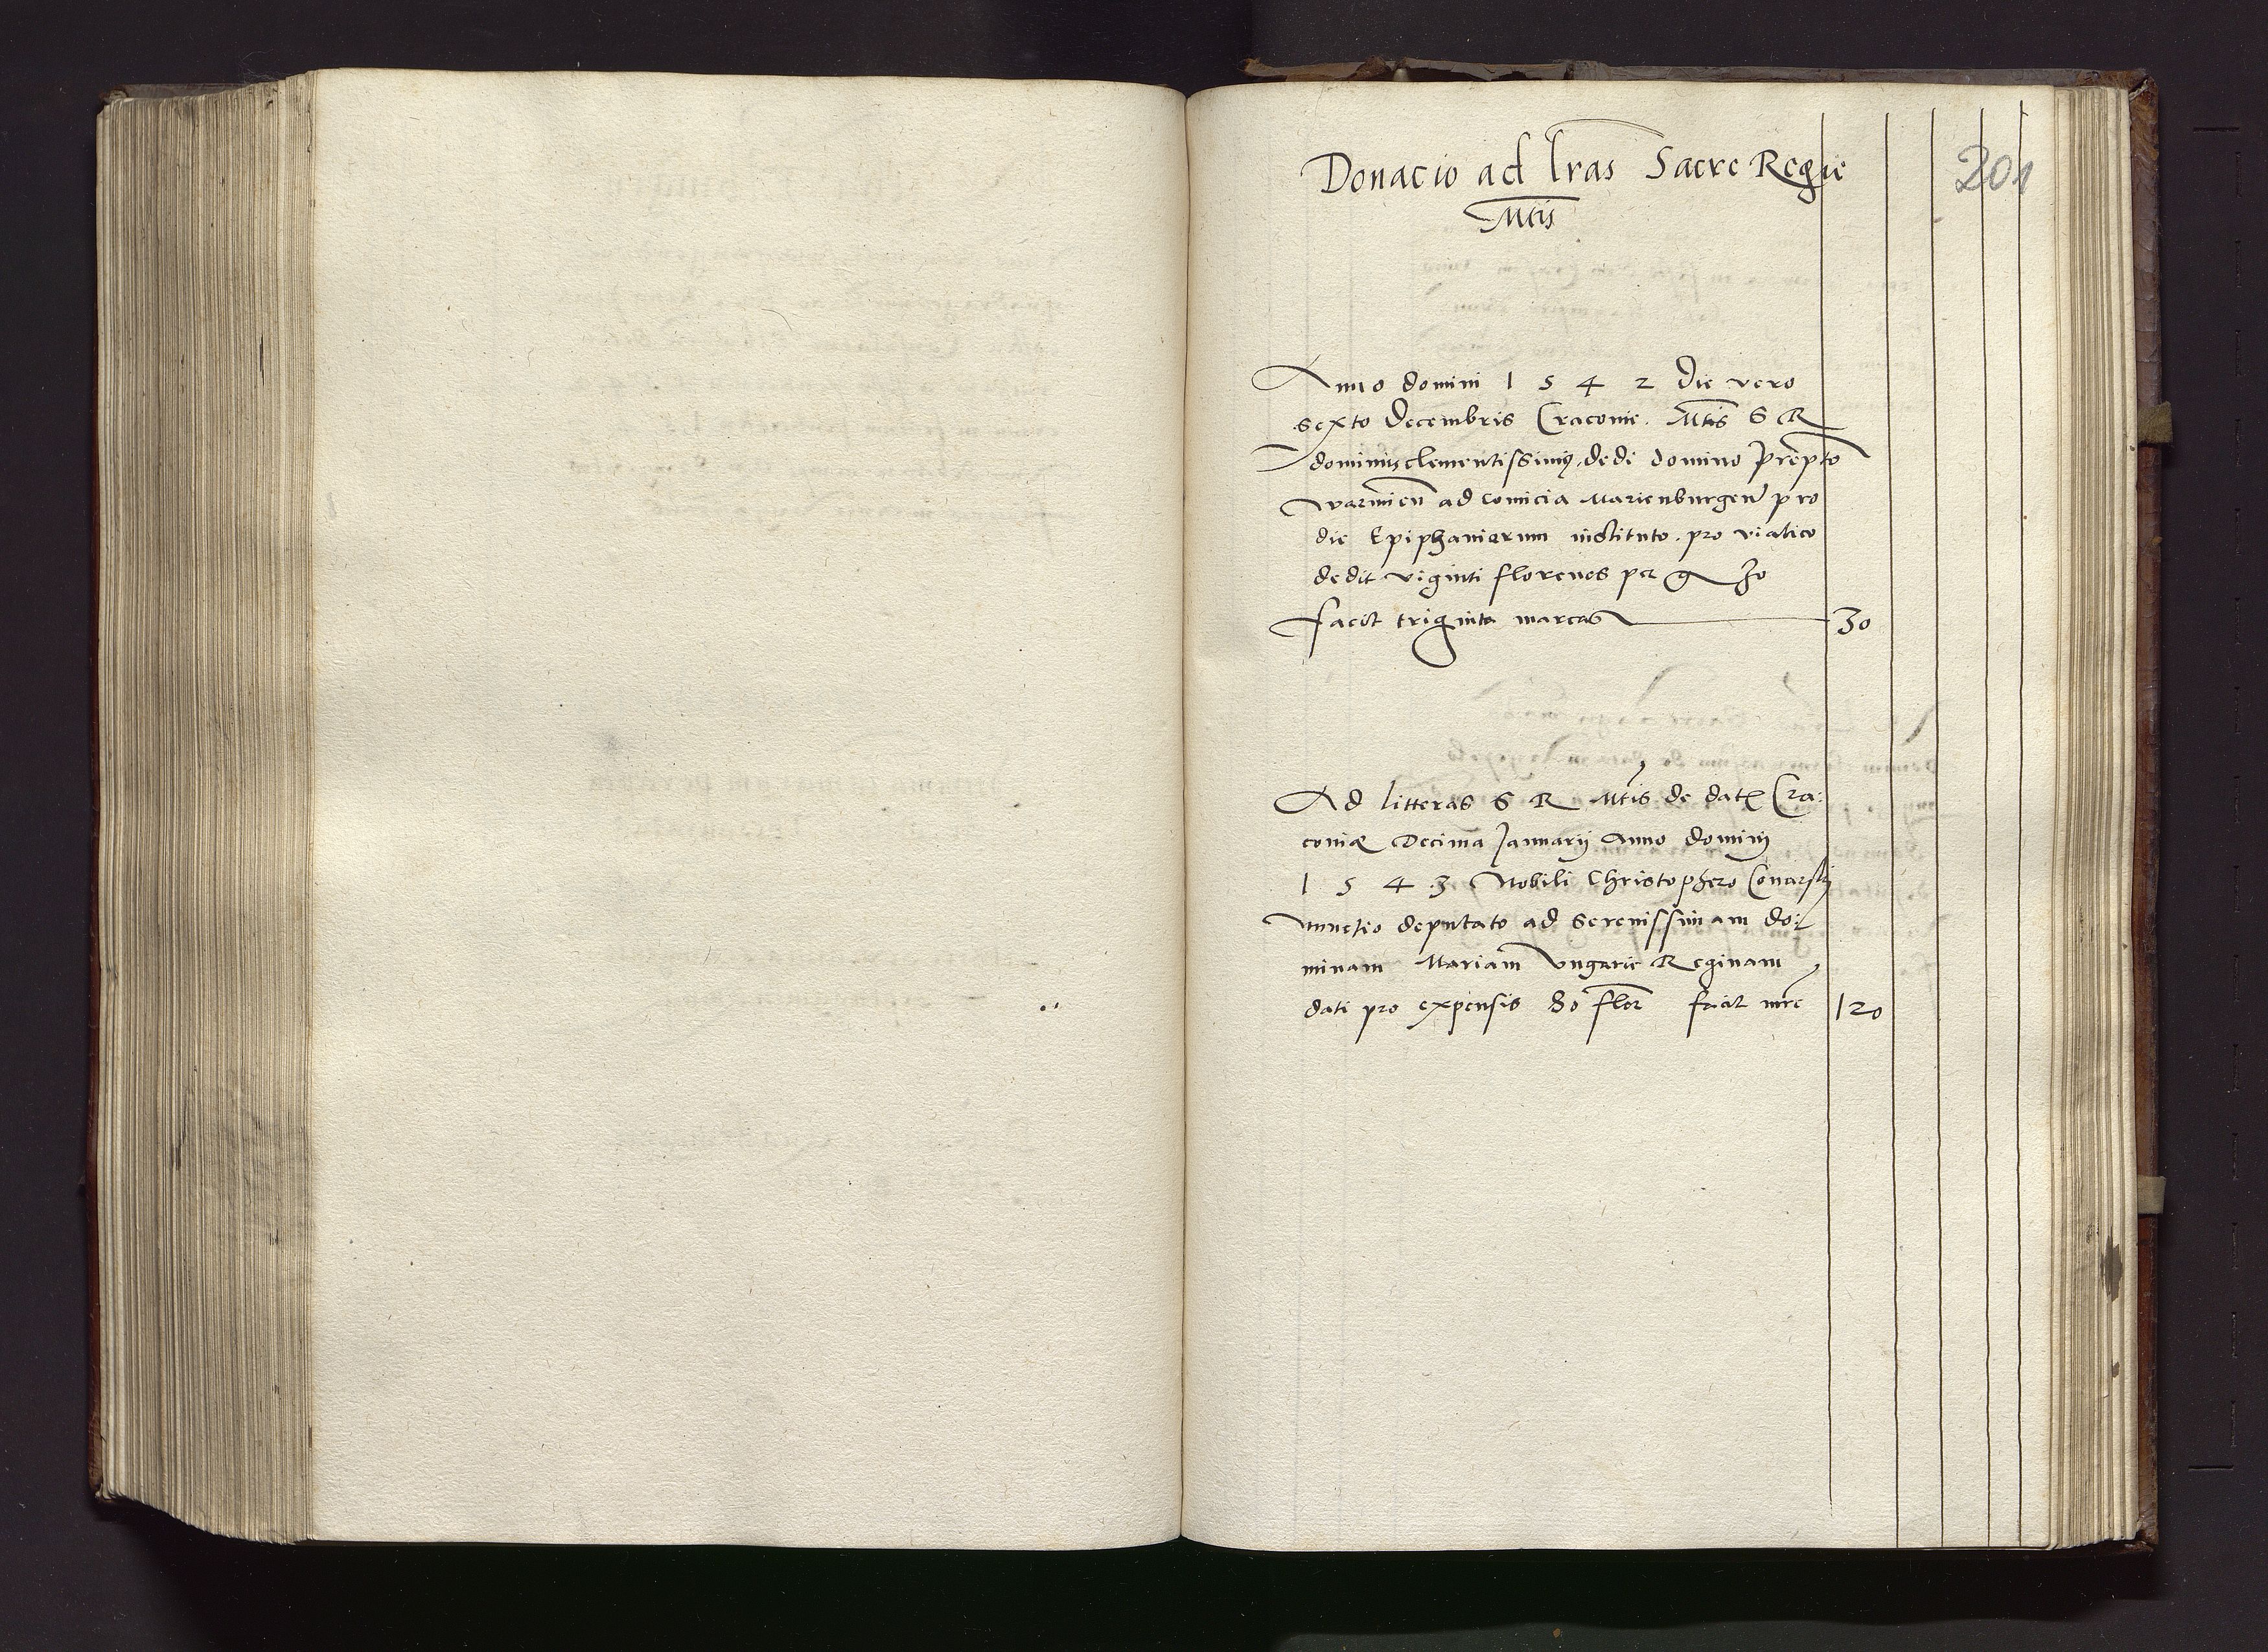 Donacio ad lras Sacre Regie
Mtis
201
Anno domini 1 5 4 2 Die vero
sexto Decembris Craconie. Mtis S R
dominus clementissimus, dedi domino
warmien ad comicia Marienburgen pro
die Epiphaniarum instituto. pro viatico
dedit viginti florenos per g 30
facit triginta marcas 30
Ad litteras S R Mtis de dat Cra:
coniæ Decima Januarij Anno dominj
1 5 4 3 Nobili Christophero Conarskj
nunctio deputato ad Serenissimam do:
minam Mariam Ungarie Reginam
dati pro expensis 80 flor facit mrc 120